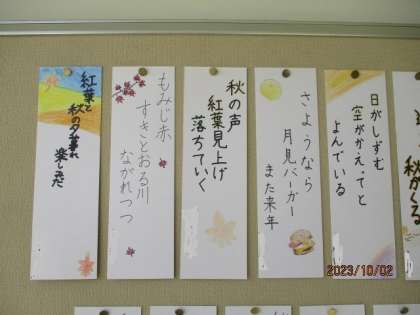 紅葉と
秋の夕暮れ
楽しみだ
もみじ赤
すきとおる川
ながれつつ
秋の声
紅葉見上げ
落ちていく
さようなら
月見バーガー
また来年
日がしずむ
空がかえってと
よんでいる
2023/10/02